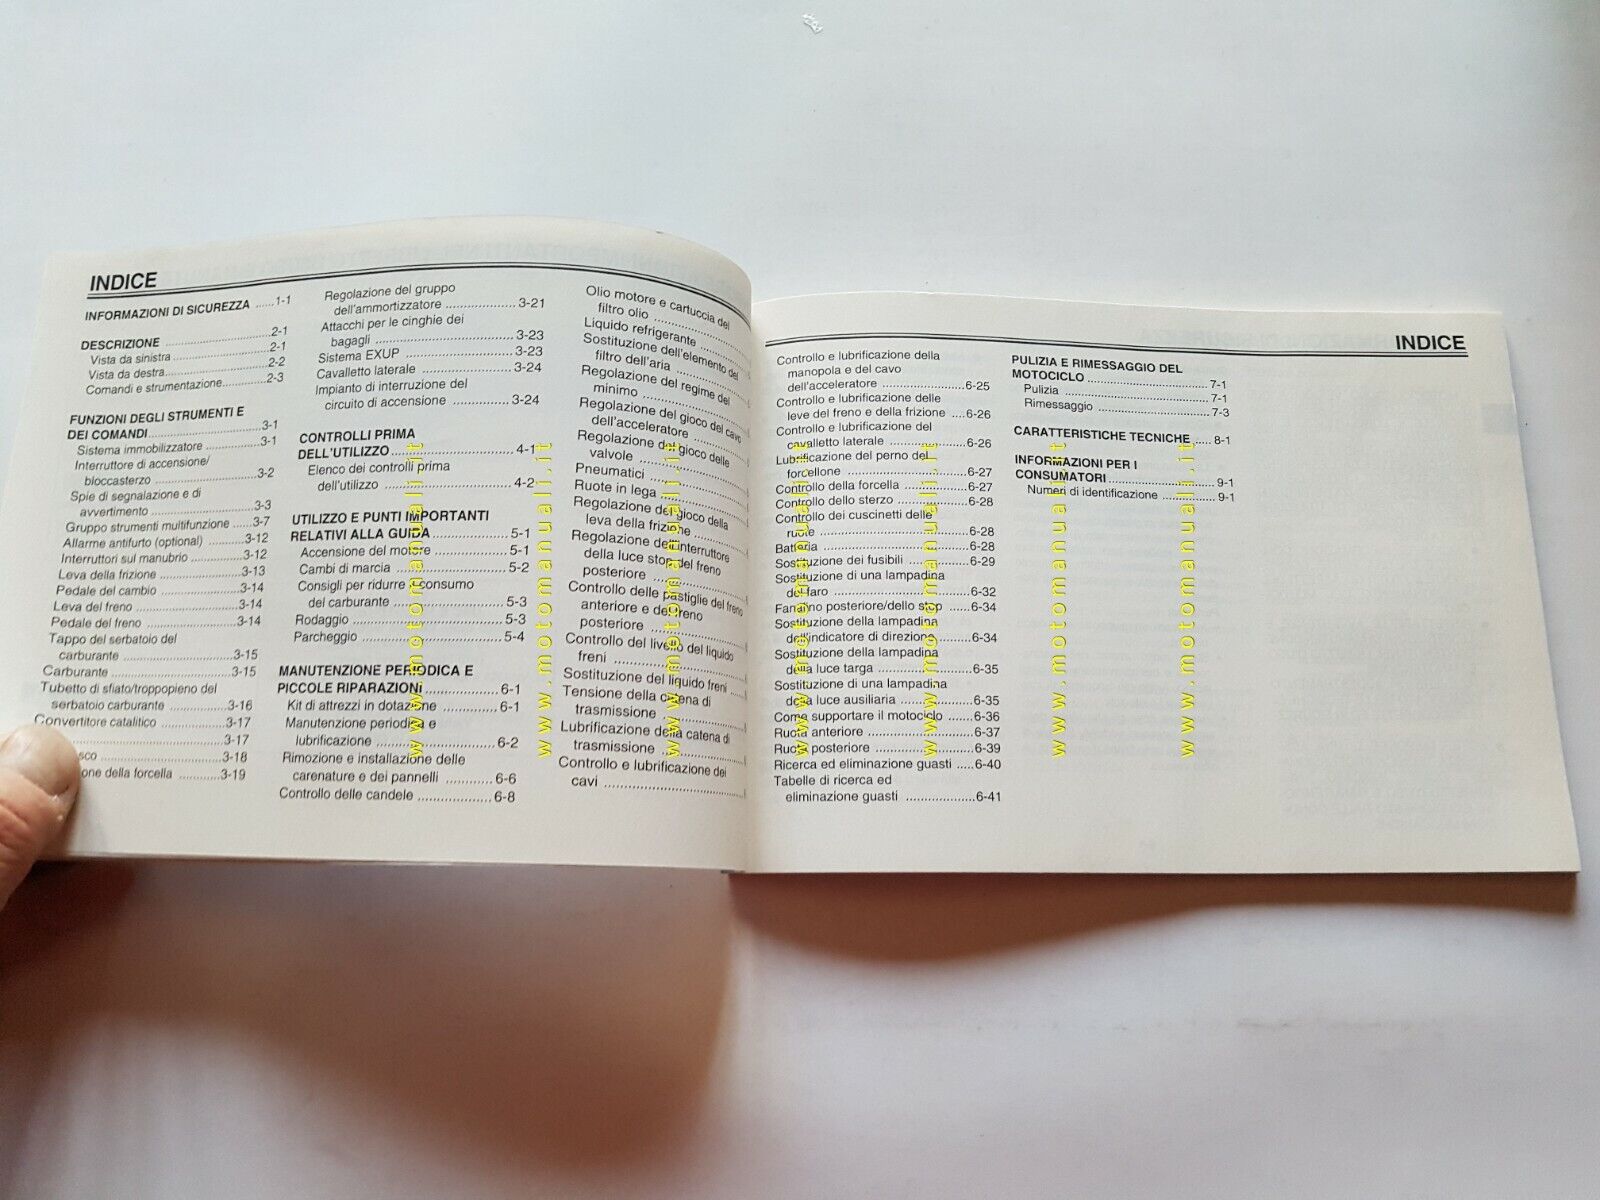 INDICE
INFORMAZIONI DI SICUREZZA ......1-1
DESCRIZIONE ..............................2-1
Vista da sinistra ..........................2-1
Vista da destra............................2-2
Comandi e strumentazione............2-3
FUNZIONI DEGLI STRUMENTI E
DEI COMANDI..............................3-1
Sistema immobilizzatore ...............3-1
Interruttore di accensione/
bloccasterzo ............................3-2
Spie di segnalazione e di
avvertimento ............................3-3
Gruppo strumenti multifunzione ......3-7
Allarme antifurto (optional) ..........3-12
Interruttori sul manubrio ..............3-12
Leva della frizione .......................3-13
Pedale del cambio .......................3-14
Leva del freno .............................3-14
Pedale del freno ..........................3-14
Tappo del serbatoio del
carburante ................................3-15
Carburante ..................................3-15
Tubetto di sfiato/troppopieno del
serbatoio carburante .................3-16
Convertitore catalitico ..................3-17
..................................3-17
sco ..................................3-18
one della forcella ...........3-19
Regolazione del gruppo
dell'ammortizzatore ....................3-21
Attacchi per le cinghie dei
bagagli .....................................3-23
Sistema EXUP .............................3-23
Cavalletto laterale ........................3-24
Impianto di interruzione del
circuito di accensione ................3-24
CONTROLLI PRIMA
DELL'UTILIZZO..............................4-1
Elenco dei controlli prima
dell'utilizzo ................................4-2
UTILIZZO E PUNTI IMPORTANTI
RELATIVI ALLA GUIDA ...................5-1
Accensione del motore ..................5-1
Cambi di marcia ...........................5-2
Consigli per ridurre il consumo
del carburante ...........................5-3
Rodaggio .....................................5-3
Parcheggio ..................................5-4
MANUTENZIONE PERIODICA E
PICCOLE RIPARAZIONI .................6-1
Kit di attrezzi in dotazione ..............6-1
Manutenzione periodica e
lubrificazione .............................6-2
Rimozione e installazione delle
carenature e dei pannelli ............6-6
Controllo delle candele ..................6-8
Olio motore e cartuccia del
filtro olio ..........................
Liquido refrigerante ............
Sostituzione dell'elemento del
filtro dell'aria ....................
Regolazione del regime del
minimo ............................
Regolazione del gioco del cavo
dell'acceleratore ................
Regolazione del gioco delle
valvole ............................
Pneumatici ........................
Ruote in lega .....................
Regolazione del gioco della
leva della frizione ..............
Regolazione dell'interruttore
della luce stop del freno
posteriore ........................
Controllo delle pastiglie del freno
anteriore e del freno
posteriore ........................
Controllo del livello del liquido
freni ................................
Sostituzione del liquido freni ....
Tensione della catena di
trasmissione .....................
Lubrificazione della catena di
trasmissione .....................
Controllo e lubrificazione dei
cavi .................................
INDICE
Controllo e lubrificazione della
manopola e del cavo
dell'acceleratore ......................6-25
Controllo e lubrificazione delle
leve del freno e della frizione ....6-26
Controllo e lubrificazione del
cavalletto laterale .....................6-26
Lubrificazione del perno del
forcellone ................................6-27
Controllo della forcella ................6-27
Controllo dello sterzo ..................6-28
Controllo dei cuscinetti delle
ruote .......................................6-28
Batteria ......................................6-28
Sostituzione dei fusibili ...............6-29
Sostituzione di una lampadina
del faro ...................................6-32
Fanalino posteriore/dello stop .....6-34
Sostituzione della lampadina
dell'indicatore di direzione .........6-34
Sostituzione della lampadina
della luce targa ........................6-35
Sostituzione di una lampadina
della luce ausiliaria ...................6-35
Come supportare il motociclo ......6-36
Ruota anteriore ..........................6-37
Ruota posteriore ........................6-39
Ricerca ed eliminazione guasti .....6-40
Tabelle di ricerca ed
eliminazione guasti ..................6-41
PULIZIA E RIMESSAGGIO DEL
MOTOCICLO ................................7-1
Pulizia .........................................7-1
Rimessaggio ...............................7-3
CARATTERISTICHE TECNICHE .....8-1
INFORMAZIONI PER I
CONSUMATORI ............................9-1
Numeri di identificazione ..............9-1
www.motomanuali.it
www.motomanuali.it
www.motomanuali.it
www.motomanuali.it
www.motomanuali.it
www.motomanuali.it
www.motomanuali.it